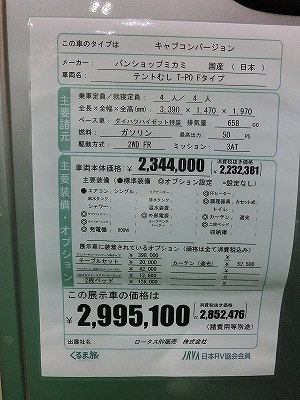 この車のタイプは キャブコンバージョン
メーカー： バンショップミカミ 国産（日本）
車両名： テントむし T-PO Fタイプ
主要諸元
乗車定員／就寝定員： 4 人／ 4 人
全長×全幅×全高(mm)： 3,390 ×1,470 ×1,970
ベース車： ダイハツハイゼット特装 排気量： 658 cc
燃料： ガソリン 最高出力： 50 PS
駆動方式： 2WD FR ミッション： 3AT
車両本体価格は ¥ 2,344,000 消費税抜き価格 ¥ 2,232,381
主要装備・オプション
主要装備（●標準装備 ◎オプション設定 －設定なし）
● エアコン：シングル
排水タンク 温水装置 トイレ
シャワー ◎外部電源 ◎カーテン 遮光
◎ 発電機： 900W 収納庫
展示車に装着されているオプション(価格は全て消費税込み)
¥ 390,000
テーブルセット ¥ 20,000 カーテン（遮光） ¥ 52,500
¥ 42,000
¥ 12,600
2段ベッド ¥ 126,000
この展示車の価格は
¥ 2,995,100 消費税抜き価格 ¥ 2,852,476
（諸費用等別途）
出展社名： ロータスRV販売 株式会社
くるま旅 JRVA 日本RV協会会員